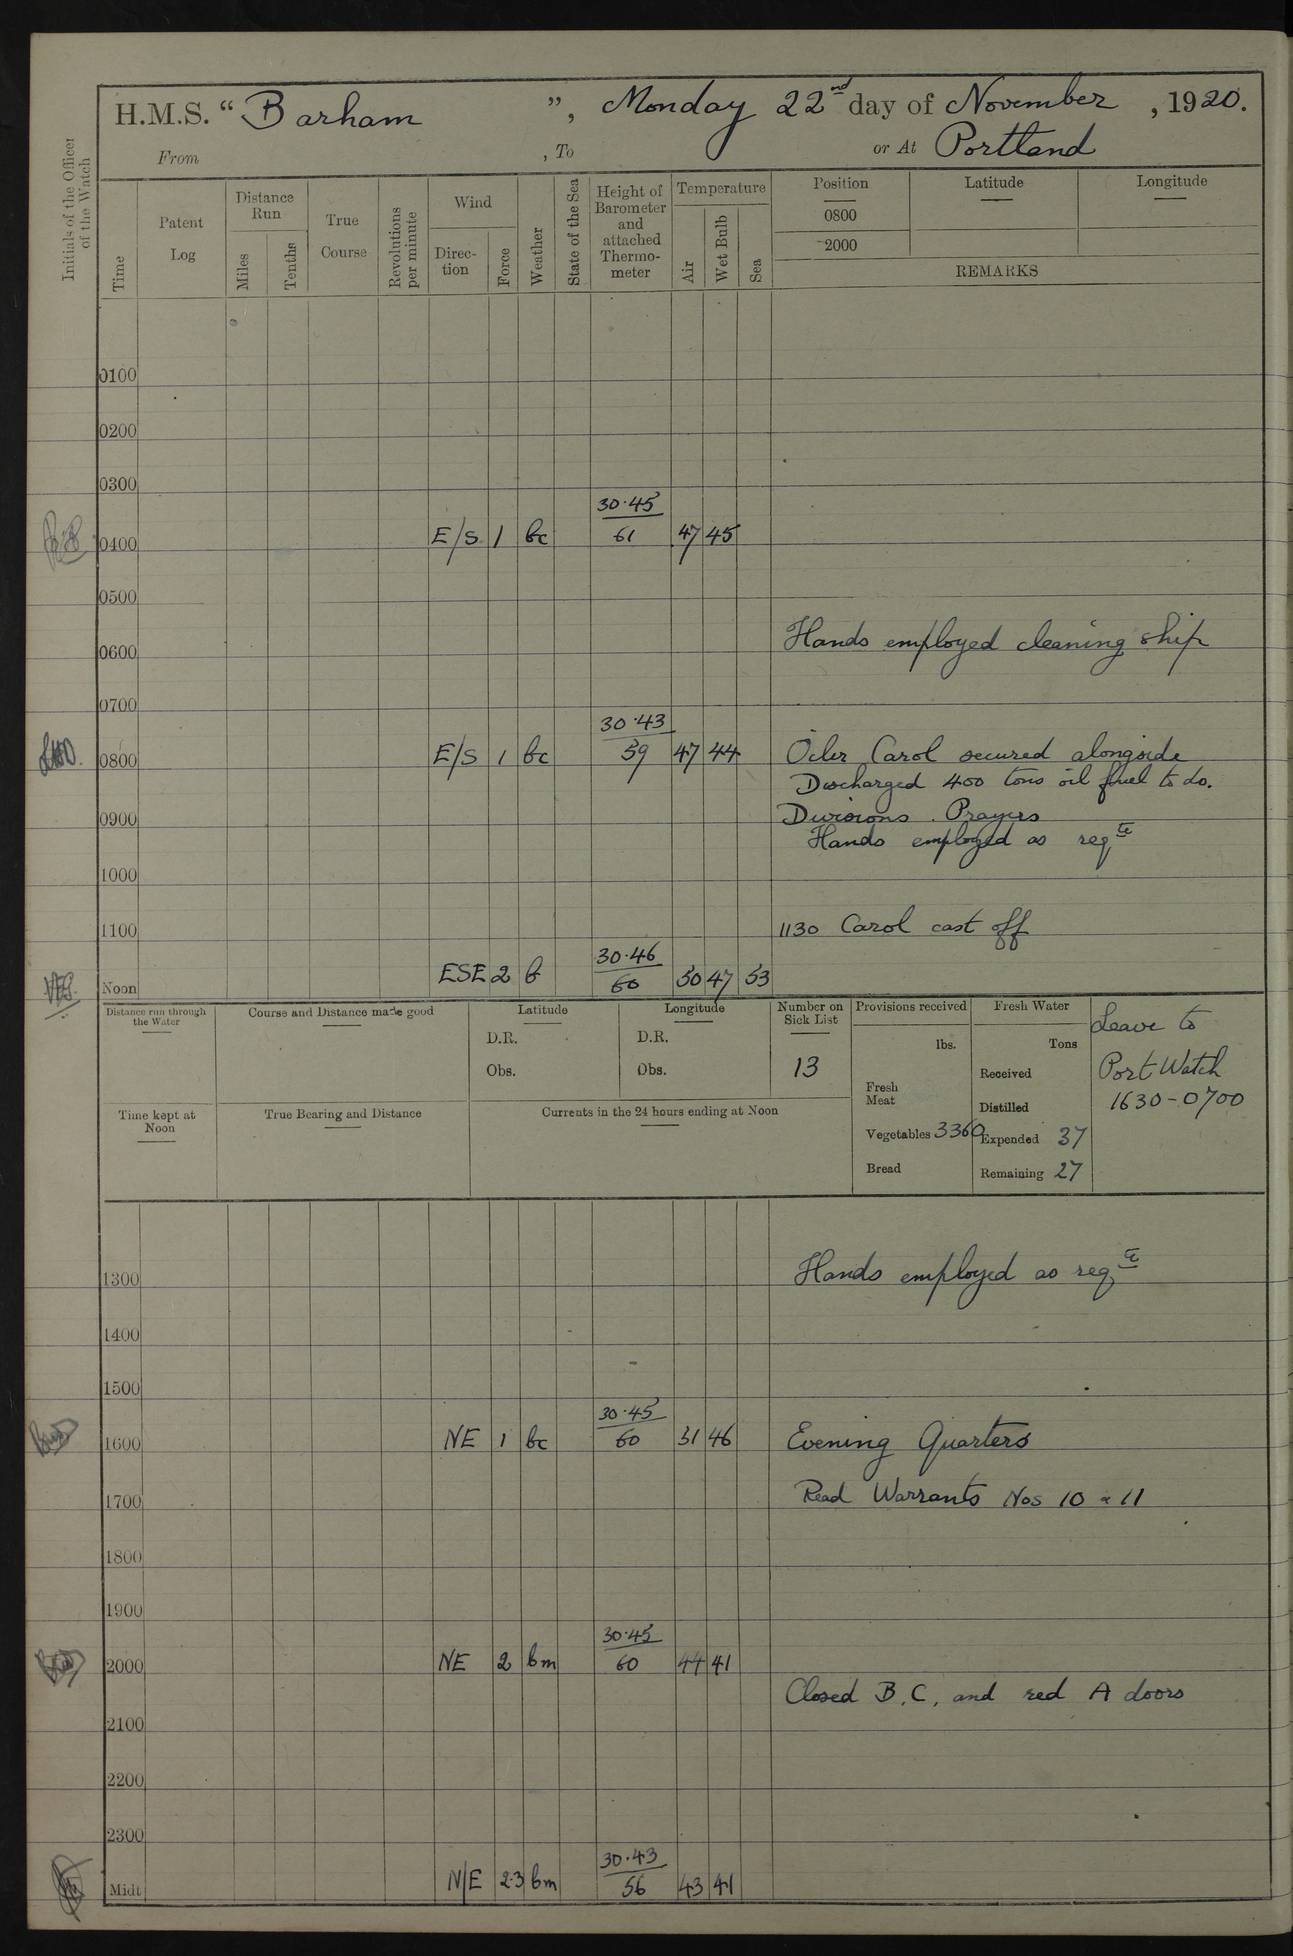 H.M.S. “ Barham ”, Monday 22nd day of November , 1920.
From , To or At Portland
Initials of the Officer of the Watch
Time
Patent Log
Distance Run
Miles
Tenths
True Course
Revolutions per minute
Wind
Direc-tion
Force
Weather
State of the Sea
Height of Barometer and attached Thermo-meter
Temperature
Air
Wet Bulb
Sea
Position
Latitude
Longitude
0800
2000
REMARKS
0100
0200
0300
30.45
0400 E/S 1 bc 61 47 45
0500
Hands employed cleaning ship
0600
0700
30.43
0800 E/S 1 bc 59 47 44 Oiler Carol secured alongside
Discharged 400 tons oil fuel to do.
0900 Divisions . Prayers
Hands employed as reqte
1000
1100 1130 Carol cast off
30.46
Noon ESE 2 b 60 50 47 53
Distance run through the Water
Course and Distance made good
Latitude
D.R.
Obs.
Longitude
D.R.
Obs.
Number on Sick List
13
Provisions received
lbs.
Fresh Meat
Vegetables 3360
Bread
Fresh Water
Tons
Received
Distilled
Expended 37
Remaining 27
Leave to
Port Watch
1630-0700
Time kept at Noon
True Bearing and Distance
Currents in the 24 hours ending at Noon
1300 Hands employed as reqte
1400
1500
30.45
1600 NE 1 bc 60 51 46 Evening Quarters
1700 Read Warrants Nos 10 & 11
1800
1900
30.45
2000 NE 2 bm 60 44 41
Closed B, C, and red A doors
2100
2200
2300
30.43
Midt N/E 2.3 bm 56 43 41